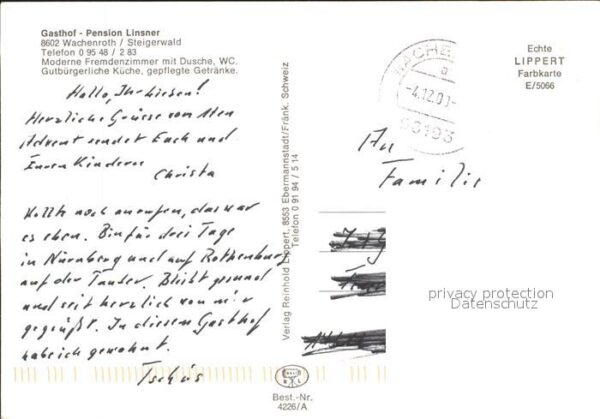 Gasthof - Pension Linsner
8602 Wachenroth / Steigerwald
Telefon 0 95 48 / 2 83
Moderne Fremdenzimmer mit Dusche, WC.
Gutbürgerliche Küche, gepflegte Getränke.
Hallo, Ihr Lieben!
Herzliche Grüsse vom 1ten
Advent sendet Euch und
Euren Kindern
Christa
Wollte noch anrufen, das war
es eben. Bin für drei Tage
in Nürnberg und auf Rothenburg
auf der Tauber. Bleibt gesund
und seit herzlich von mir
gegrüßt. In diesem Gasthof
habe ich gewohnt.
Tschüs
Verlag Reinhold Lippert, 8553 Ebermannstadt/Fränk. Schweiz
Telefon 0 91 94 / 5 14
Best.-Nr.
4226/A
Echte
LIPPERT
Farbkarte
E/5066
-4.12.00-
96193
An
Familie
privacy protection
Datenschutz